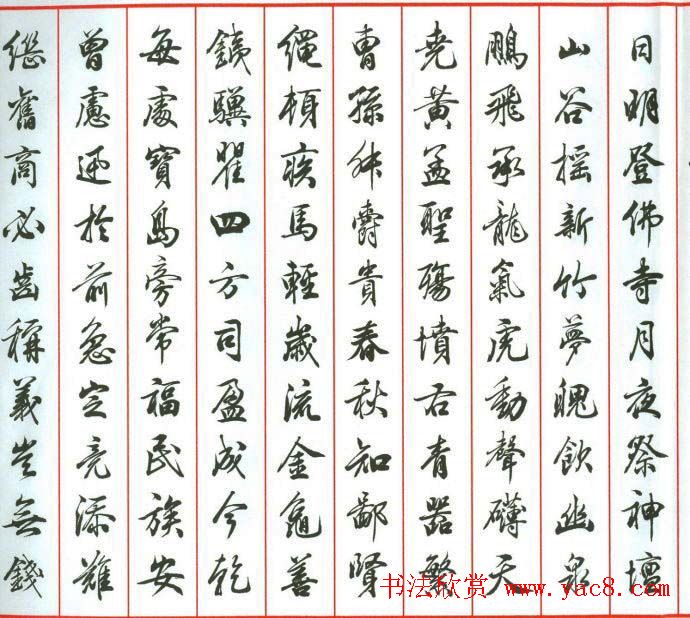 日明登佛寺月夜祭神壇
山谷摇新竹夢魄飲幽泉
鵬飛承龍氣虎動聲礴天
堯黃孟聖殤墳右青器繁
曹孫爵貴春秋知鄙賢
繩頓疾馬輕歲流金龜善
驥瞿四方司盈成今乾
每處寶島旁常福民族安
曾慮於前急定竟添難
繼舊商必齒稱義豈無錢
书法欣赏 www.yac8.com